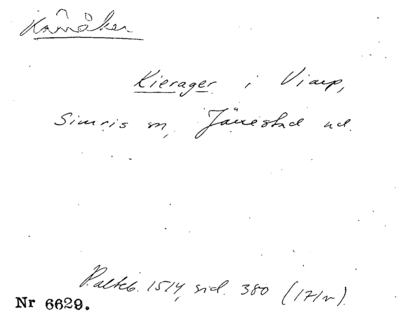 Kärråker
Kierager i Viarp,
Simris sn, Järrestad hd.
Palteb. 1514, sid. 380 (17/V).
Nr 6629.